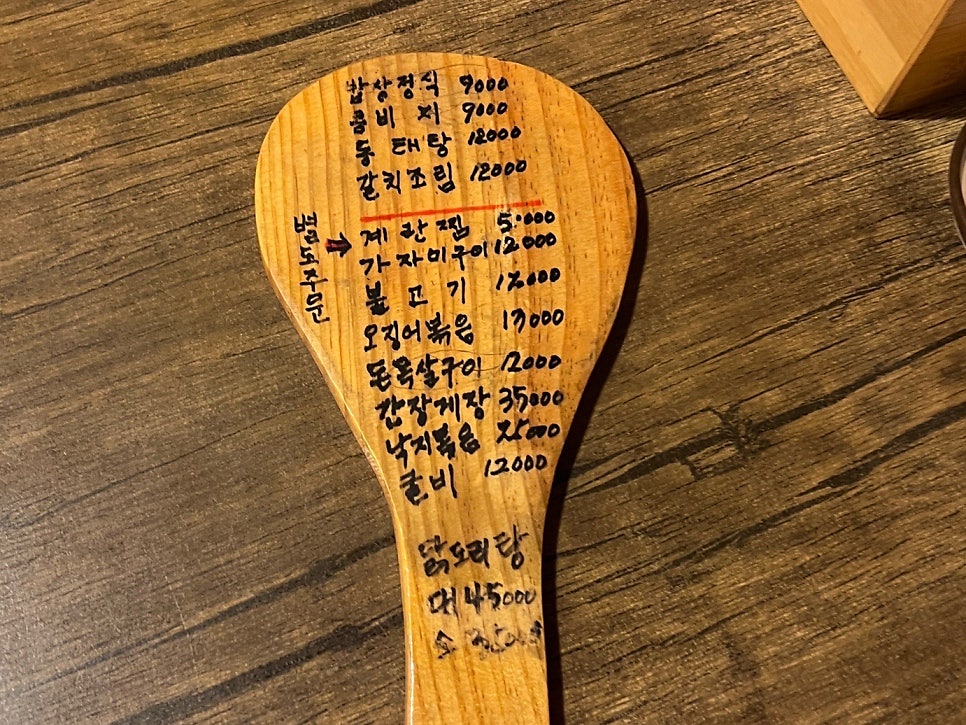 밥상정식 9000
콩비지 9000
동태탕 12000
갈치조림 12000
별도주문
계란찜 5.000
가자미구이 12.000
불고기 12000
오징어볶음 13000
돈목살구이 12000
간장게장 35000
낙지볶음 25000
갈비 12000
닭도리탕
대 45000
소